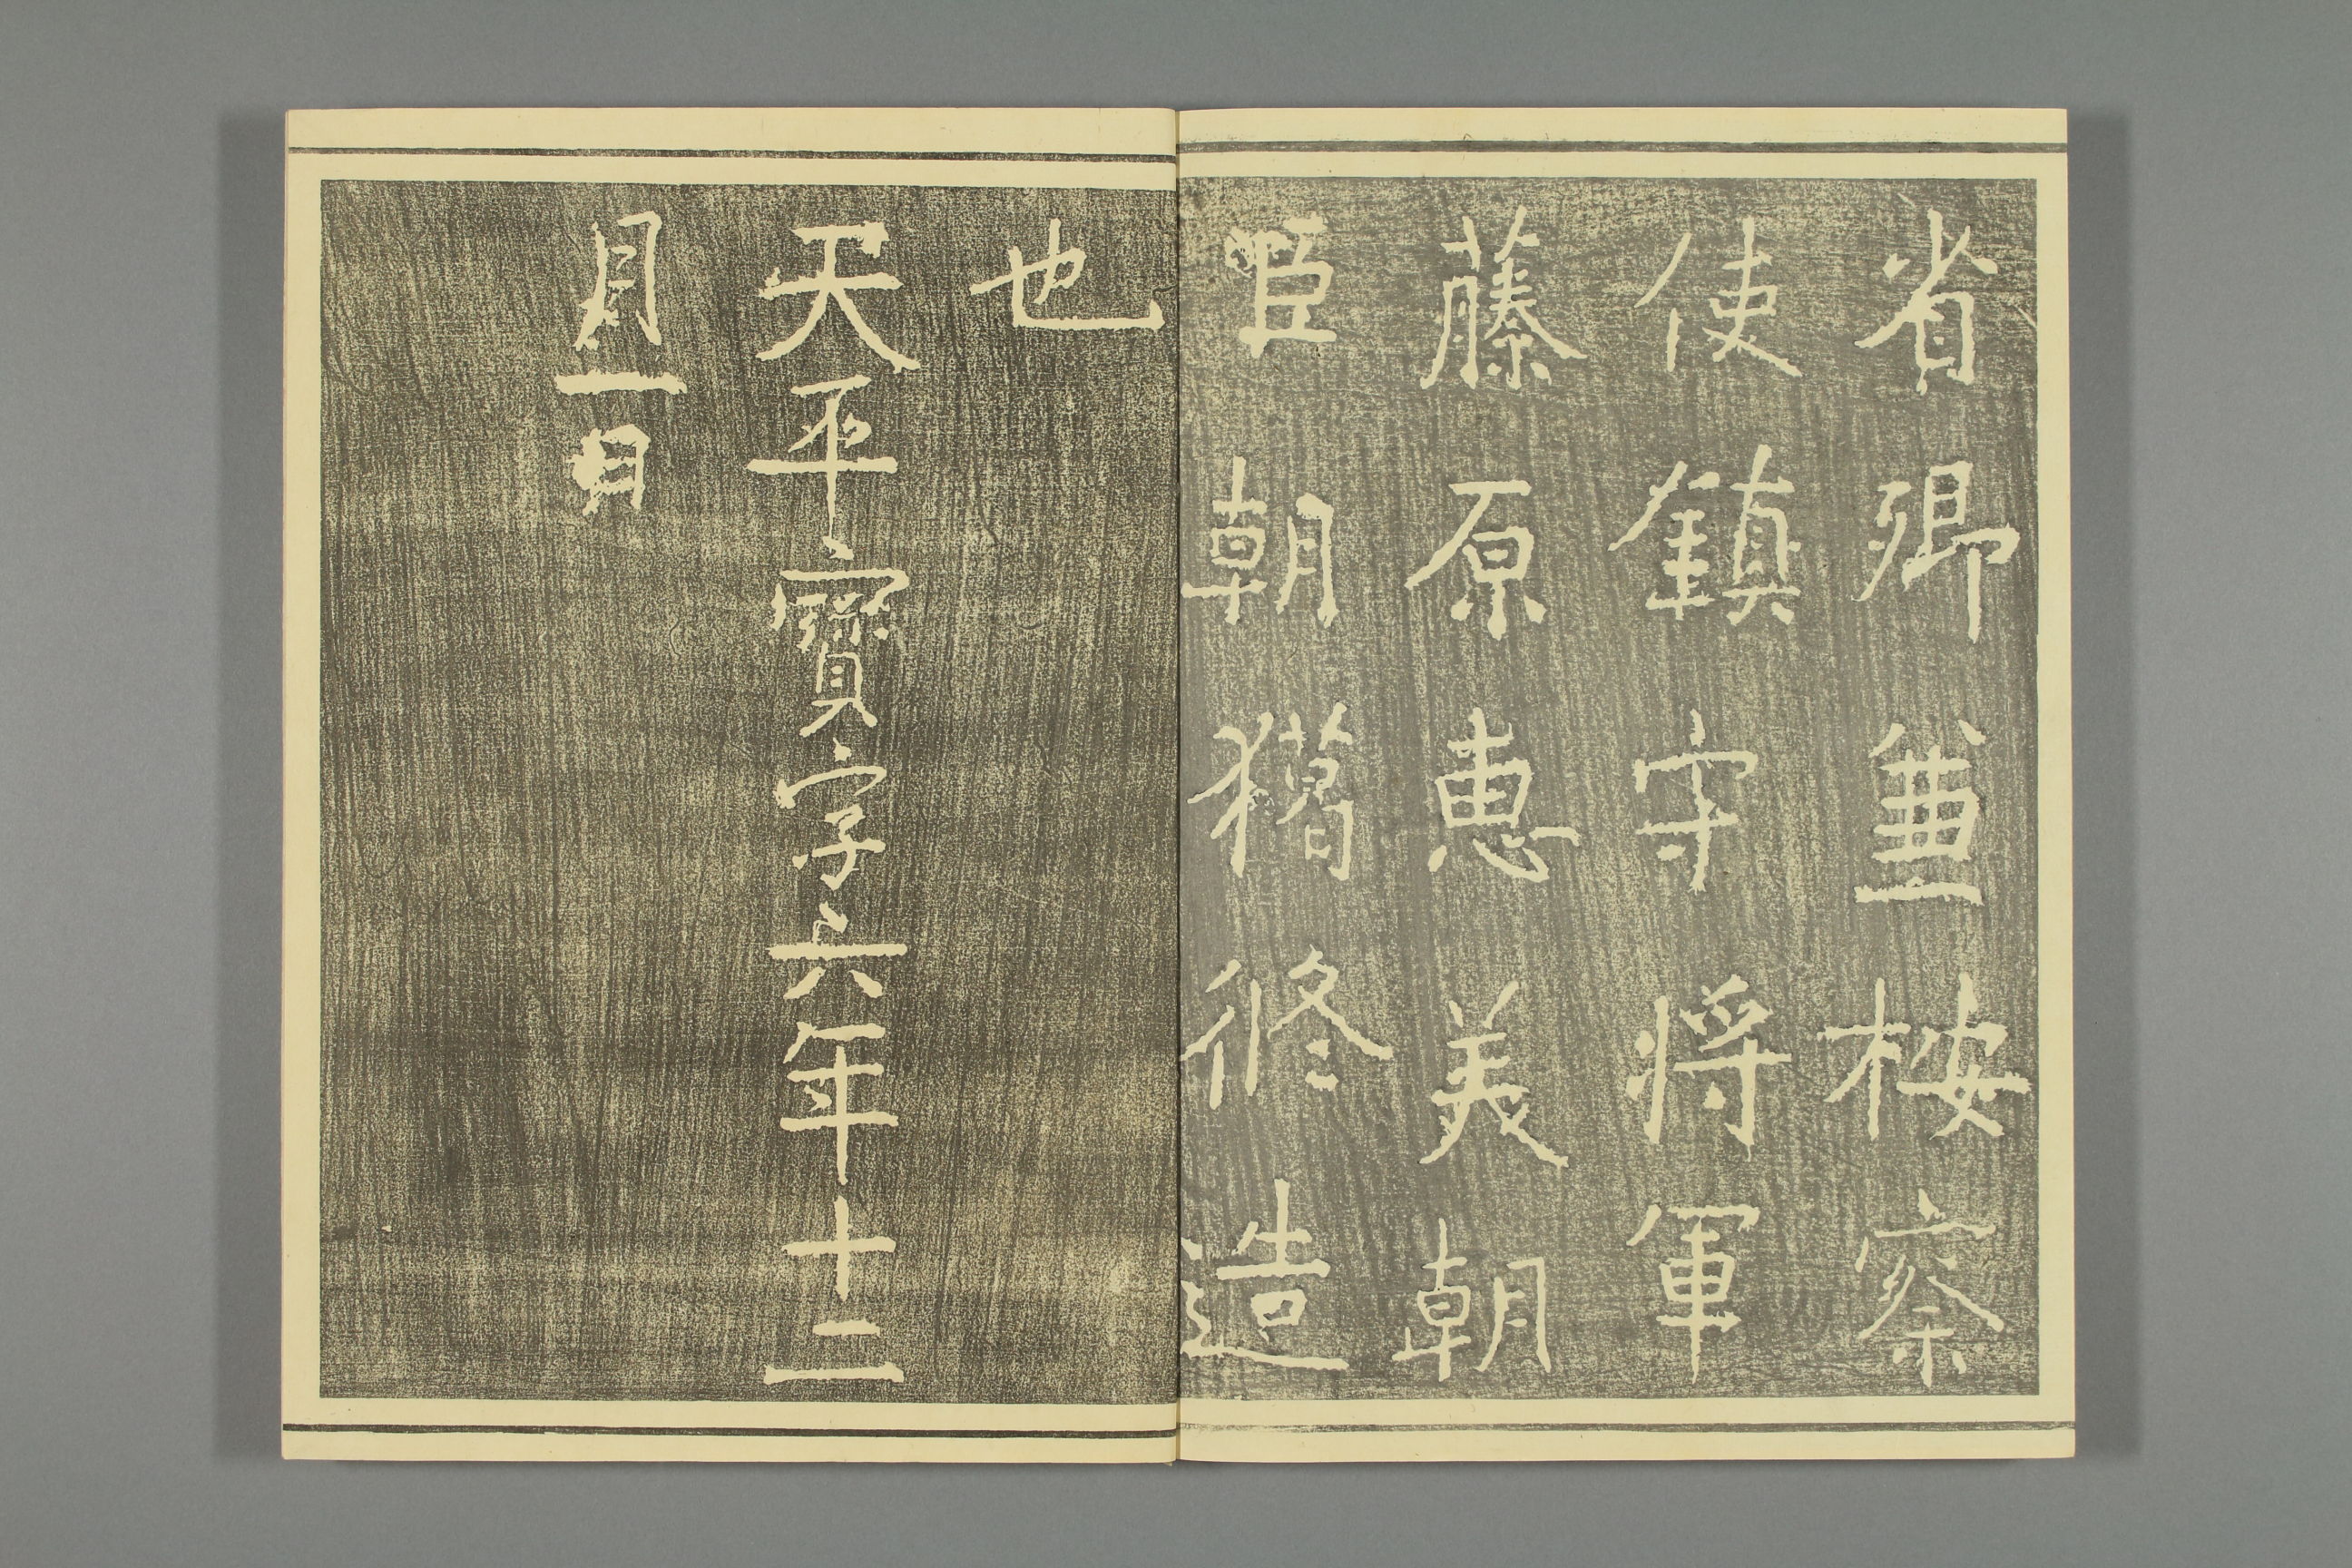 省卿兼按察
使鎮守将軍
藤原惠美朝
臣朝獦修造
也
天平寶字六年十二
月一日